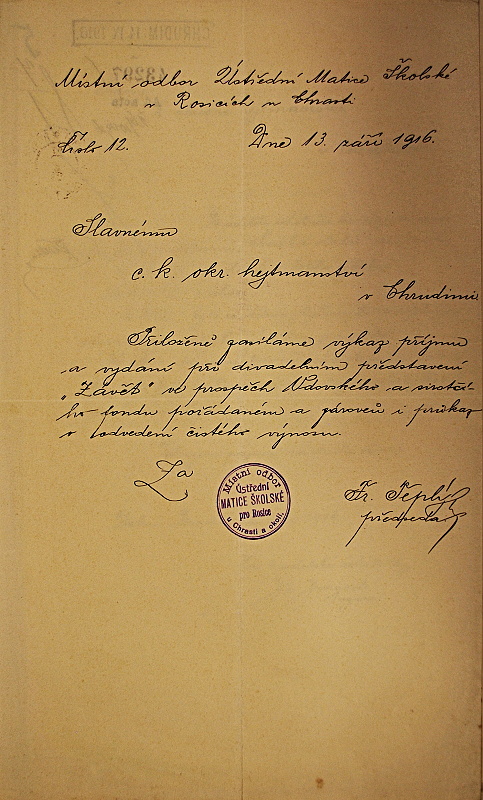 Místní odbor Ústřední Matice Školské
v Rosicích u Chrasti
Číslo 12.
Dne 13. září 1916.
Slavnému
c. k. okr. hejtmanství
v Chrudimi
Přiloženě zasíláme výkaz příjmu
a vydání při divadelním představení
"Závěť" ve prospěch Vdovského a sirotčí-
ho fondu pořádaném a zároveň i průkaz
o odvedení čistého výnosu.
Za
Místní odbor
Ústřední
MATICE ŠKOLSKÉ
pro Rosice
u Chrasti a okolí.
Fr. Teplý
předseda
CHRUDIM